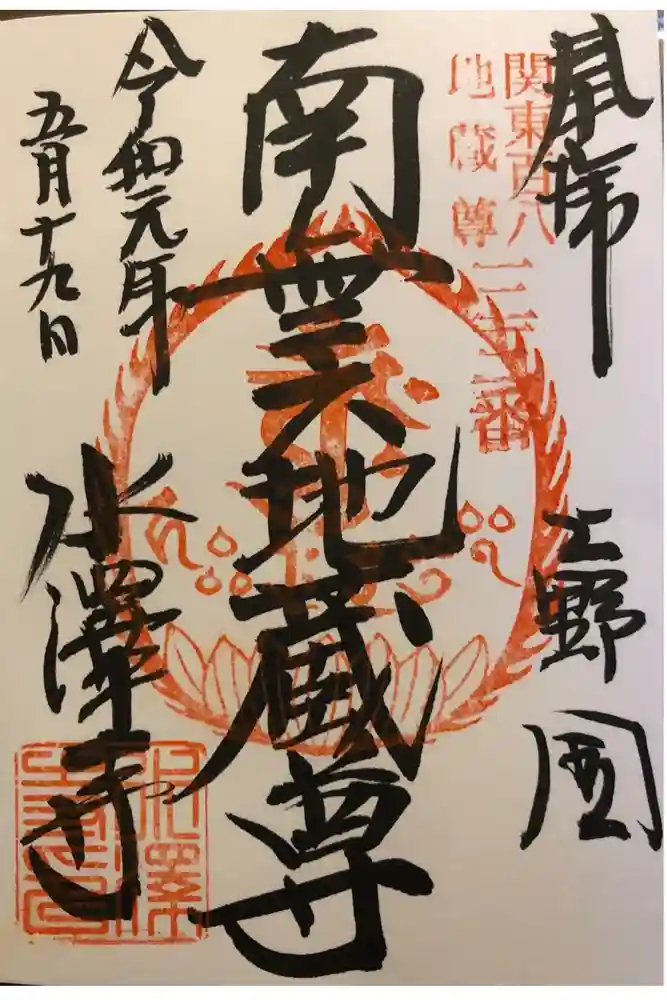 奉拝　上野国
関東百八
地蔵尊三十二番
南無六地蔵尊
令和元年
五月十九日
水澤寺